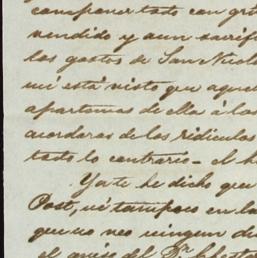 componer todo con gra
vendido y aun sacrifi
los gastos de San Nicola
mí está visto que aquel
apartamos de ella á los
acordaras de los ridiculos
todo lo contrario - el h
Ya te he dicho que
Post, ni tampoco en la
que no veo ningun de
el aviso del Dr.